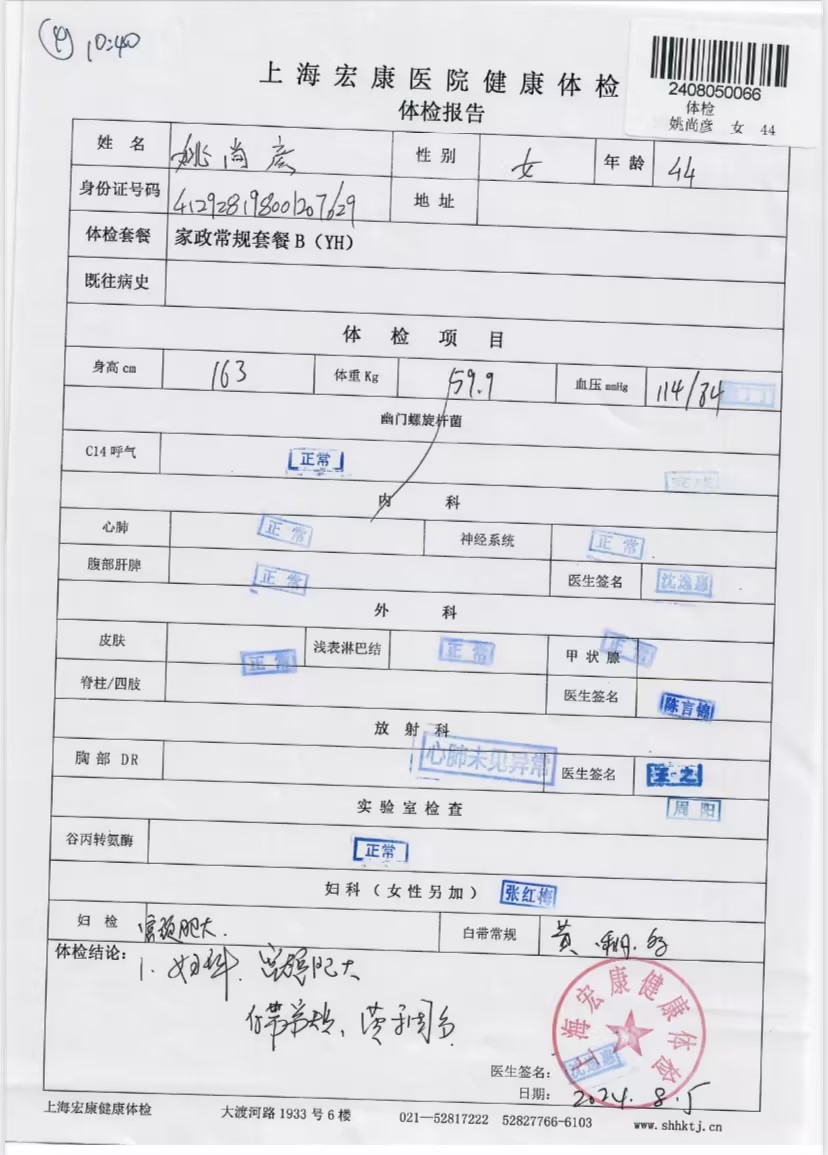 (4) 10:40
上海宏康医院健康体检
体检报告
2408050066
体检
姚尚彦 女 44
姓名 姚尚彦 性别 女 年龄 44
身份证号码 412928198001207629 地址
体检套餐 家政常规套餐B(YH)
既往病史
体检项目
身高cm 163 体重Kg 59.9 血压mmHg 114/84
幽门螺旋杆菌
C14呼气 正常
内科
心肺 正常 神经系统 正常
腹部肝脾 正常 医生签名
外科
皮肤 正常 浅表淋巴结 正常 甲状腺 正常
脊柱/四肢 医生签名 陈言锦
放射科
胸部DR 心肺未见异常 医生签名
实验室检查 周阳
谷丙转氨酶 正常
妇科(女性另加) 张红梅
妇检 宫颈肥大. 白带常规 黄
体检结论: 1. 妇科: 宫颈肥大
白带常规: 黄
上海宏康健康体检
医生签名:
日期: 2024.8.5
上海宏康健康体检 大渡河路1933号6楼 021—52817222 52827766-6103 www.shhktj.cn